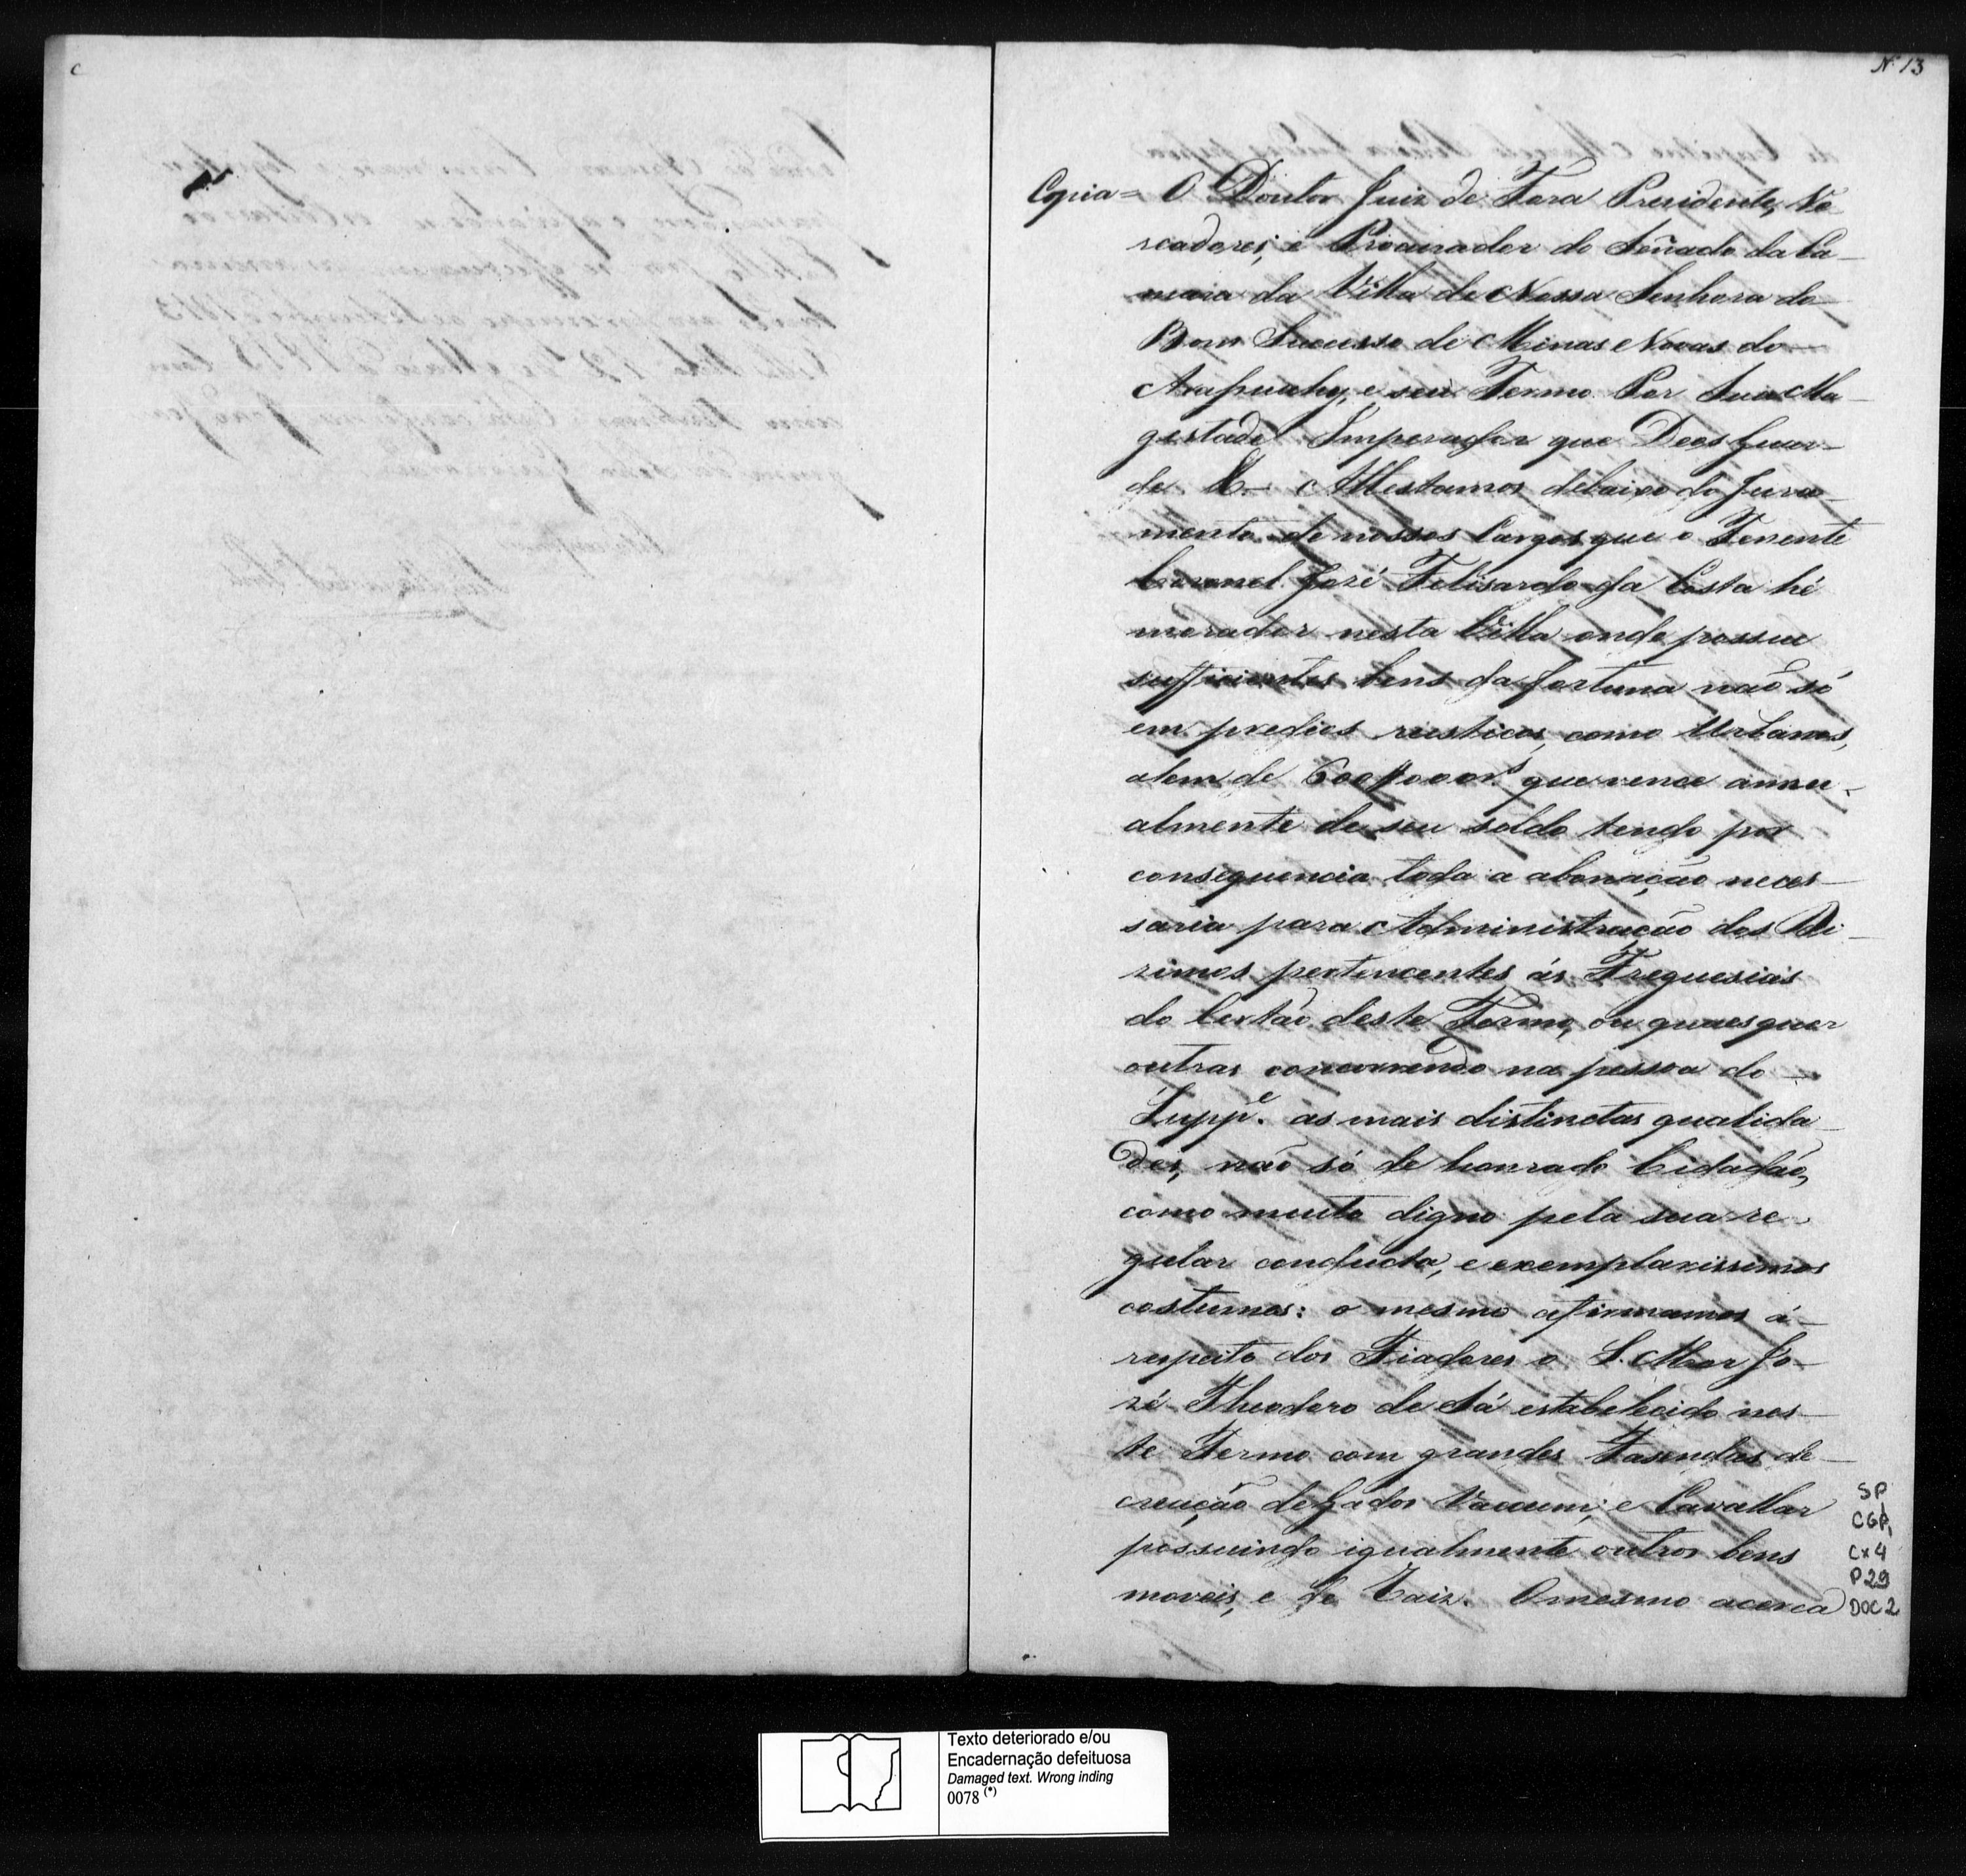 Nº 13
Copia = O Doutor Juiz de Fora Presidente, Ve
readores, e Procurador do Senado da Ca-
mara da Villa de Nossa Senhora do
Bom Sucesso de Minas Novas do
Arassuahy, e seu Termo Por Sua Ma-
gestade Imperador que Deos Guar-
de &.- Attestamos debaixo do Jura-
mento de nossos Cargos que o Tenente
Coronel José Felisardo da Costa hé
morador nesta Villa onde possue
sufficientes bens da fortuna não só
em predios rusticos, como Urbanos,
alem de 600$000 rs que vence annu-
almente de seu soldo tendo por
consequencia toda a abonação neces-
saria para Administração dos Di-
zimos pertencentes ás Freguesias
do Certão deste Termo, ou quaesquer
outras concorrendo na pessoa do
Suppe. as mais distinctas qualida-
des, não só de honrado Cidadão,
como muito digno pela sua re-
gular conducta, e exemplarissimos
costumes: o mesmo afirmamos á
respeito dos Fiadores o S. Mor Jo-
zé Theodoro de Sá estabelecido nes-
te Termo com grandes Fasendas de
creação de Gados Vaccum, e Cavallar
possuindo igualmente outros bens
moveis, e de Raiz. O mesmo acerca
SP
CGP1
Cx 4
P 29
DOC 2
Texto deteriorado e/ou
Encadernação defeituosa
Damaged text. Wrong inding
0078 (*)